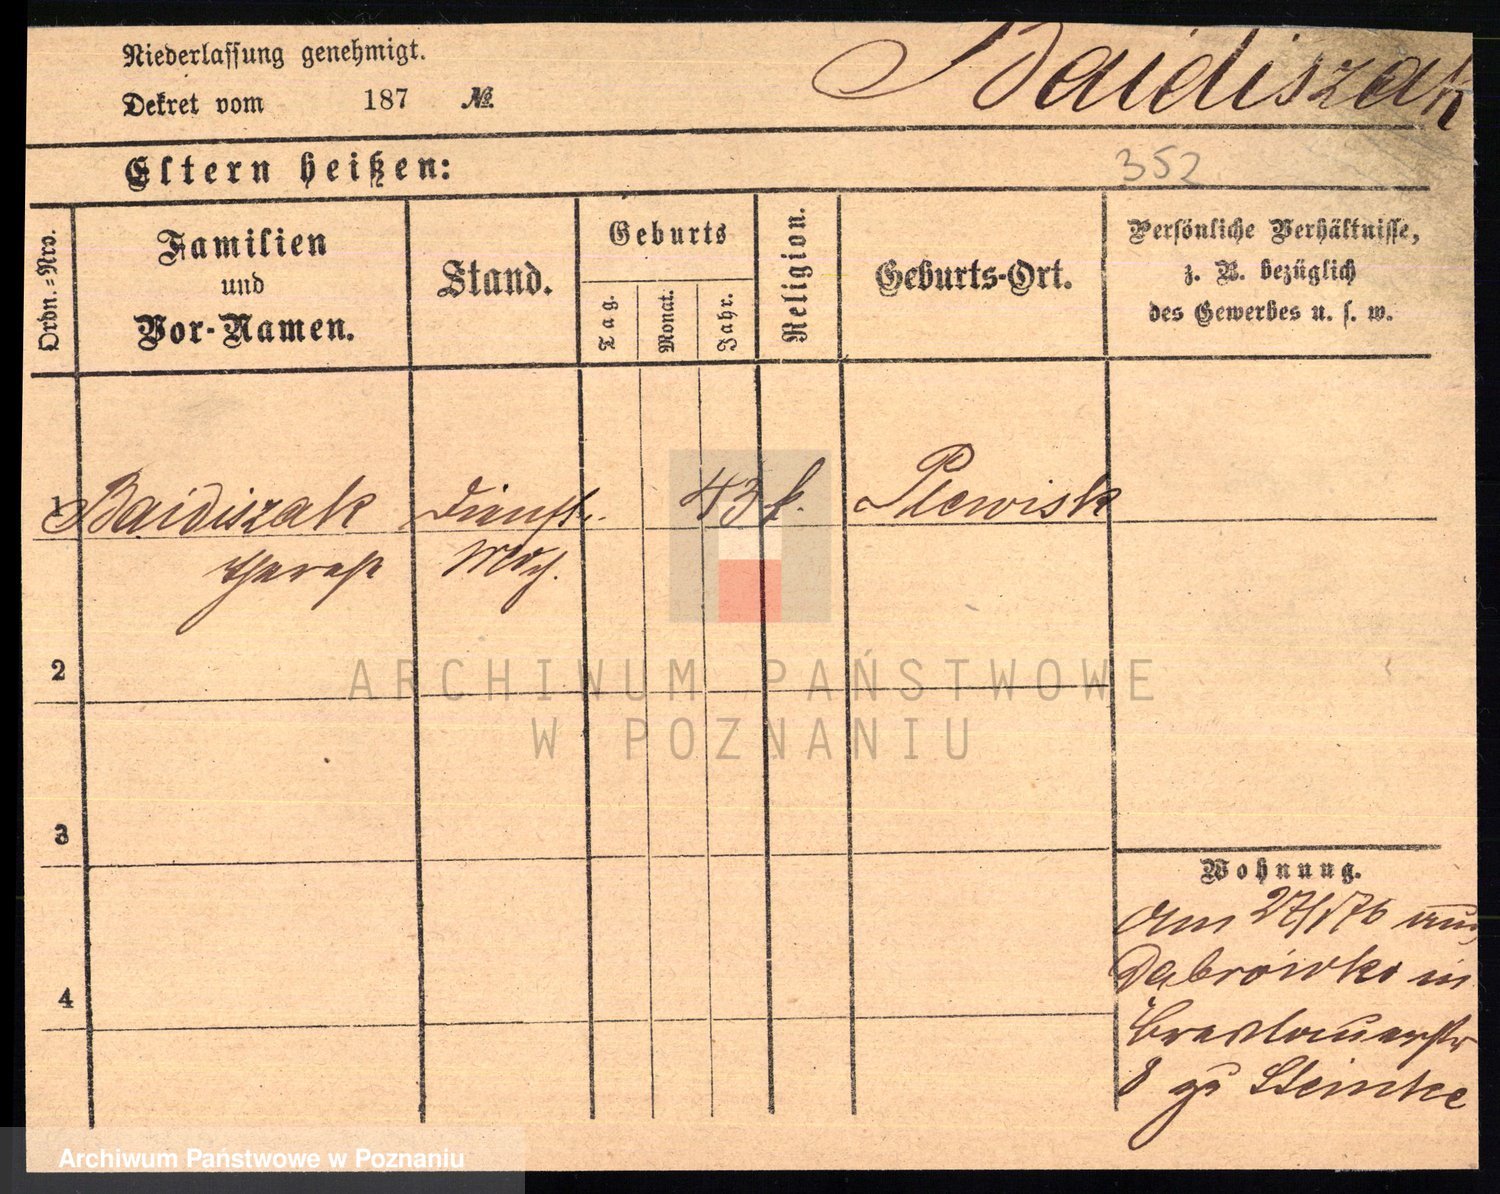 Niederlassung genehmigt.
Dekret vom 187 №
Baidiszak
Eltern heißen:
352
Ordn.-Nro.
Familien
und
Vor-Namen.
Stand.
Geburts
Tag.
Monat.
Jahr.
Religion.
Geburts-Ort.
Persönliche Verhältnisse,
z. B. bezüglich
des Gewerbes u. s. w.
1 Baidiszak Dienst. 43 k. Plewisk
Therese
2
3
4
Wohnung.
Am 27/1 76 aus
Dabrowka in
Breslauerstr
8 zu Steinke
ARCHIWUM PAŃSTWOWE
W POZNANIU
Archiwum Państwowe w Poznaniu